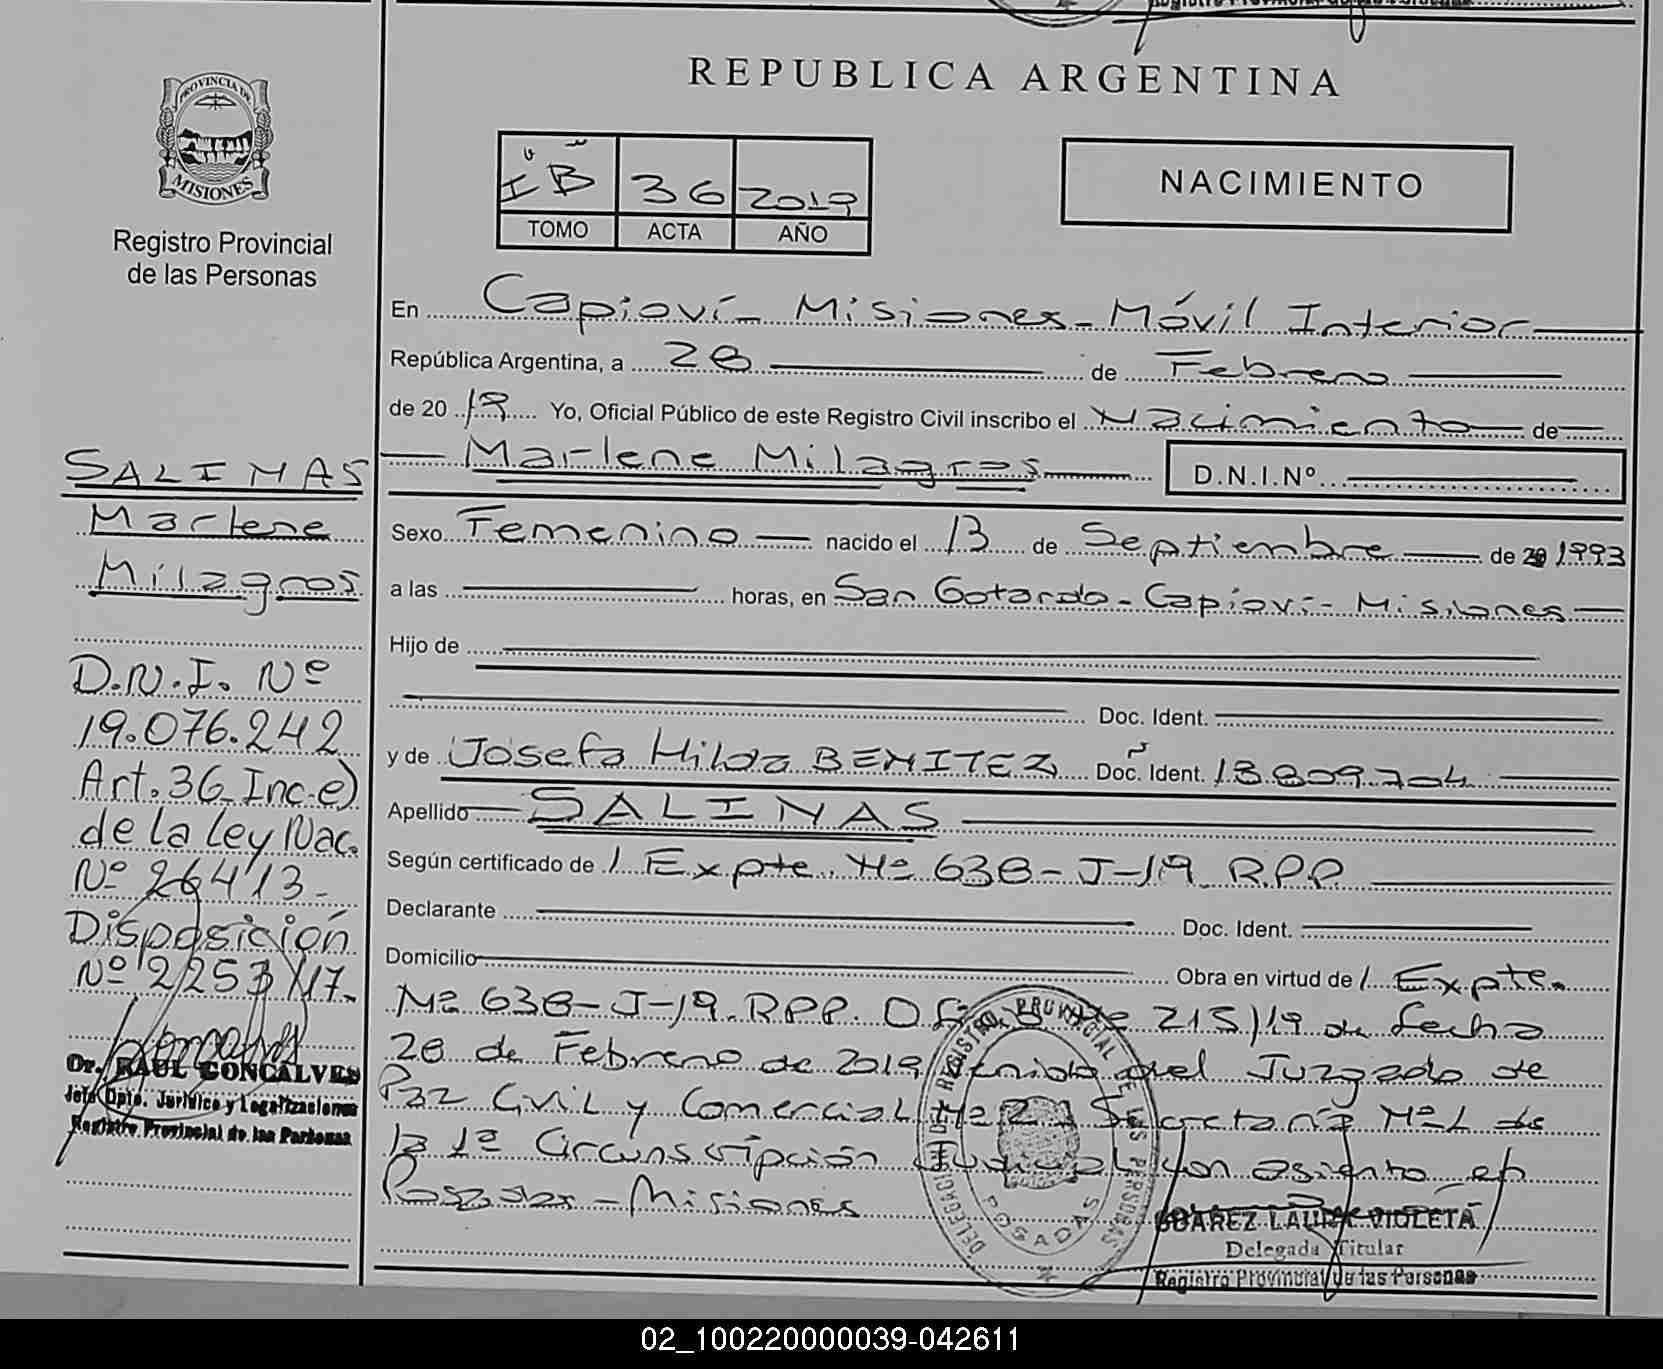 REPUBLICA ARGENTINA
PROVINCIA DE
MISIONES
Registro Provincial
de las Personas
I B 36 2019
TOMO ACTA AÑO
NACIMIENTO
En Capioví - Misiones - Móvil Interior
República Argentina, a 28 de Febrero
de 2019 Yo, Oficial Público de este Registro Civil inscribo el Nacimiento de
Marlene Milagros D.N.I.Nº
Sexo Femenino nacido el 13 de Septiembre de 1993
a las horas, en San Gotardo - Capioví - Misiones
Hijo de
Doc. Ident.
y de Josefa Hilda BENITEZ Doc. Ident. 13809704
Apellido SALINAS
Según certificado de / Expte. Nº 638-J-19 R.P.P.
Declarante Doc. Ident.
Domicilio Obra en virtud de / Expte.
Nº 638-J-19. R.P.P. 215/19 de fecha
28 de Febrero de 2019 del Juzgado de
Paz Civil y Comercial Nº 2 Secretaría Nº 1 de
la 1ª Circunscripción Judicial con asiento en
Posadas - Misiones
SALINAS
Marlene
Milagros
D.N.I. Nº
19.076.242
Art. 36 Inc. e)
de la Ley Nac.
Nº 26413-
Disposición
Nº 2253/17.
Dr. RAUL GONCALVES
Jefe Dpto. Jurídico y Legalizaciones
Registro Provincial de las Personas
DELEGACION REGISTRO PROVINCIAL DE LAS PERSONAS
POSADAS
SUAREZ LAURA VIOLETA
Delegada Titular
Registro Provincial de las Personas
02_100220000039-042611